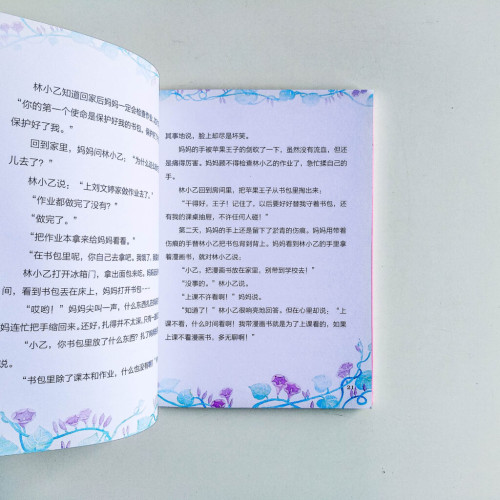 林小乙知道回家后妈妈一定会检查作业
“你的第一个使命是保护我的书包。保护
保护好了我。”
回到家里，妈妈问林小乙：“为什么
儿去了？”
林小乙说：“上刘文婷家做作业去了。”
“作业都做完了没有？”
“做完了。”
“把作业本拿来给妈妈看看。”
“在书包里呢，你自己去拿吧。我饿了，
林小乙打开冰箱门，拿出面包来吃。妈妈
间，看到书包丢在床上，妈妈打开书包……
“哎哟！”妈妈尖叫一声，什么东西
妈连忙把手缩回来。还好，扎得并不太深，只有一
“小乙，你书包里放了什么东西？扎了
说。
“书包里除了课本和作业，什么也没有啊！”
其事地说，脸上却尽是坏笑。
妈妈的手被苹果王子的剑砍了一下，虽然没有流血，但还
是痛得厉害。妈妈顾不得检查林小乙的作业了，急忙揉自己的
手。
林小乙回到房间里，把苹果王子从书包里掏出来：
“干得好，王子！记住了，以后要好好替我守着书包，还
有我的课桌抽屉，不许任何人碰！”
第二天，妈妈的手上还是留下了淤青的伤痕。妈妈用带着
伤痕的手替林小乙把书包背到背上。妈妈看到林小乙的手里拿
着漫画书，就对林小乙说：
“小乙，把漫画书放在家里，别带到学校去！”
“没事的。”林小乙说。
“上课不许看啊！”妈妈说。
“知道了！”林小乙很响亮地回答。但在心里却说：“上
课不看，什么时间看啊！我带漫画书就是为了上课看的，如果
上课不看漫画书，多无聊啊！”
31